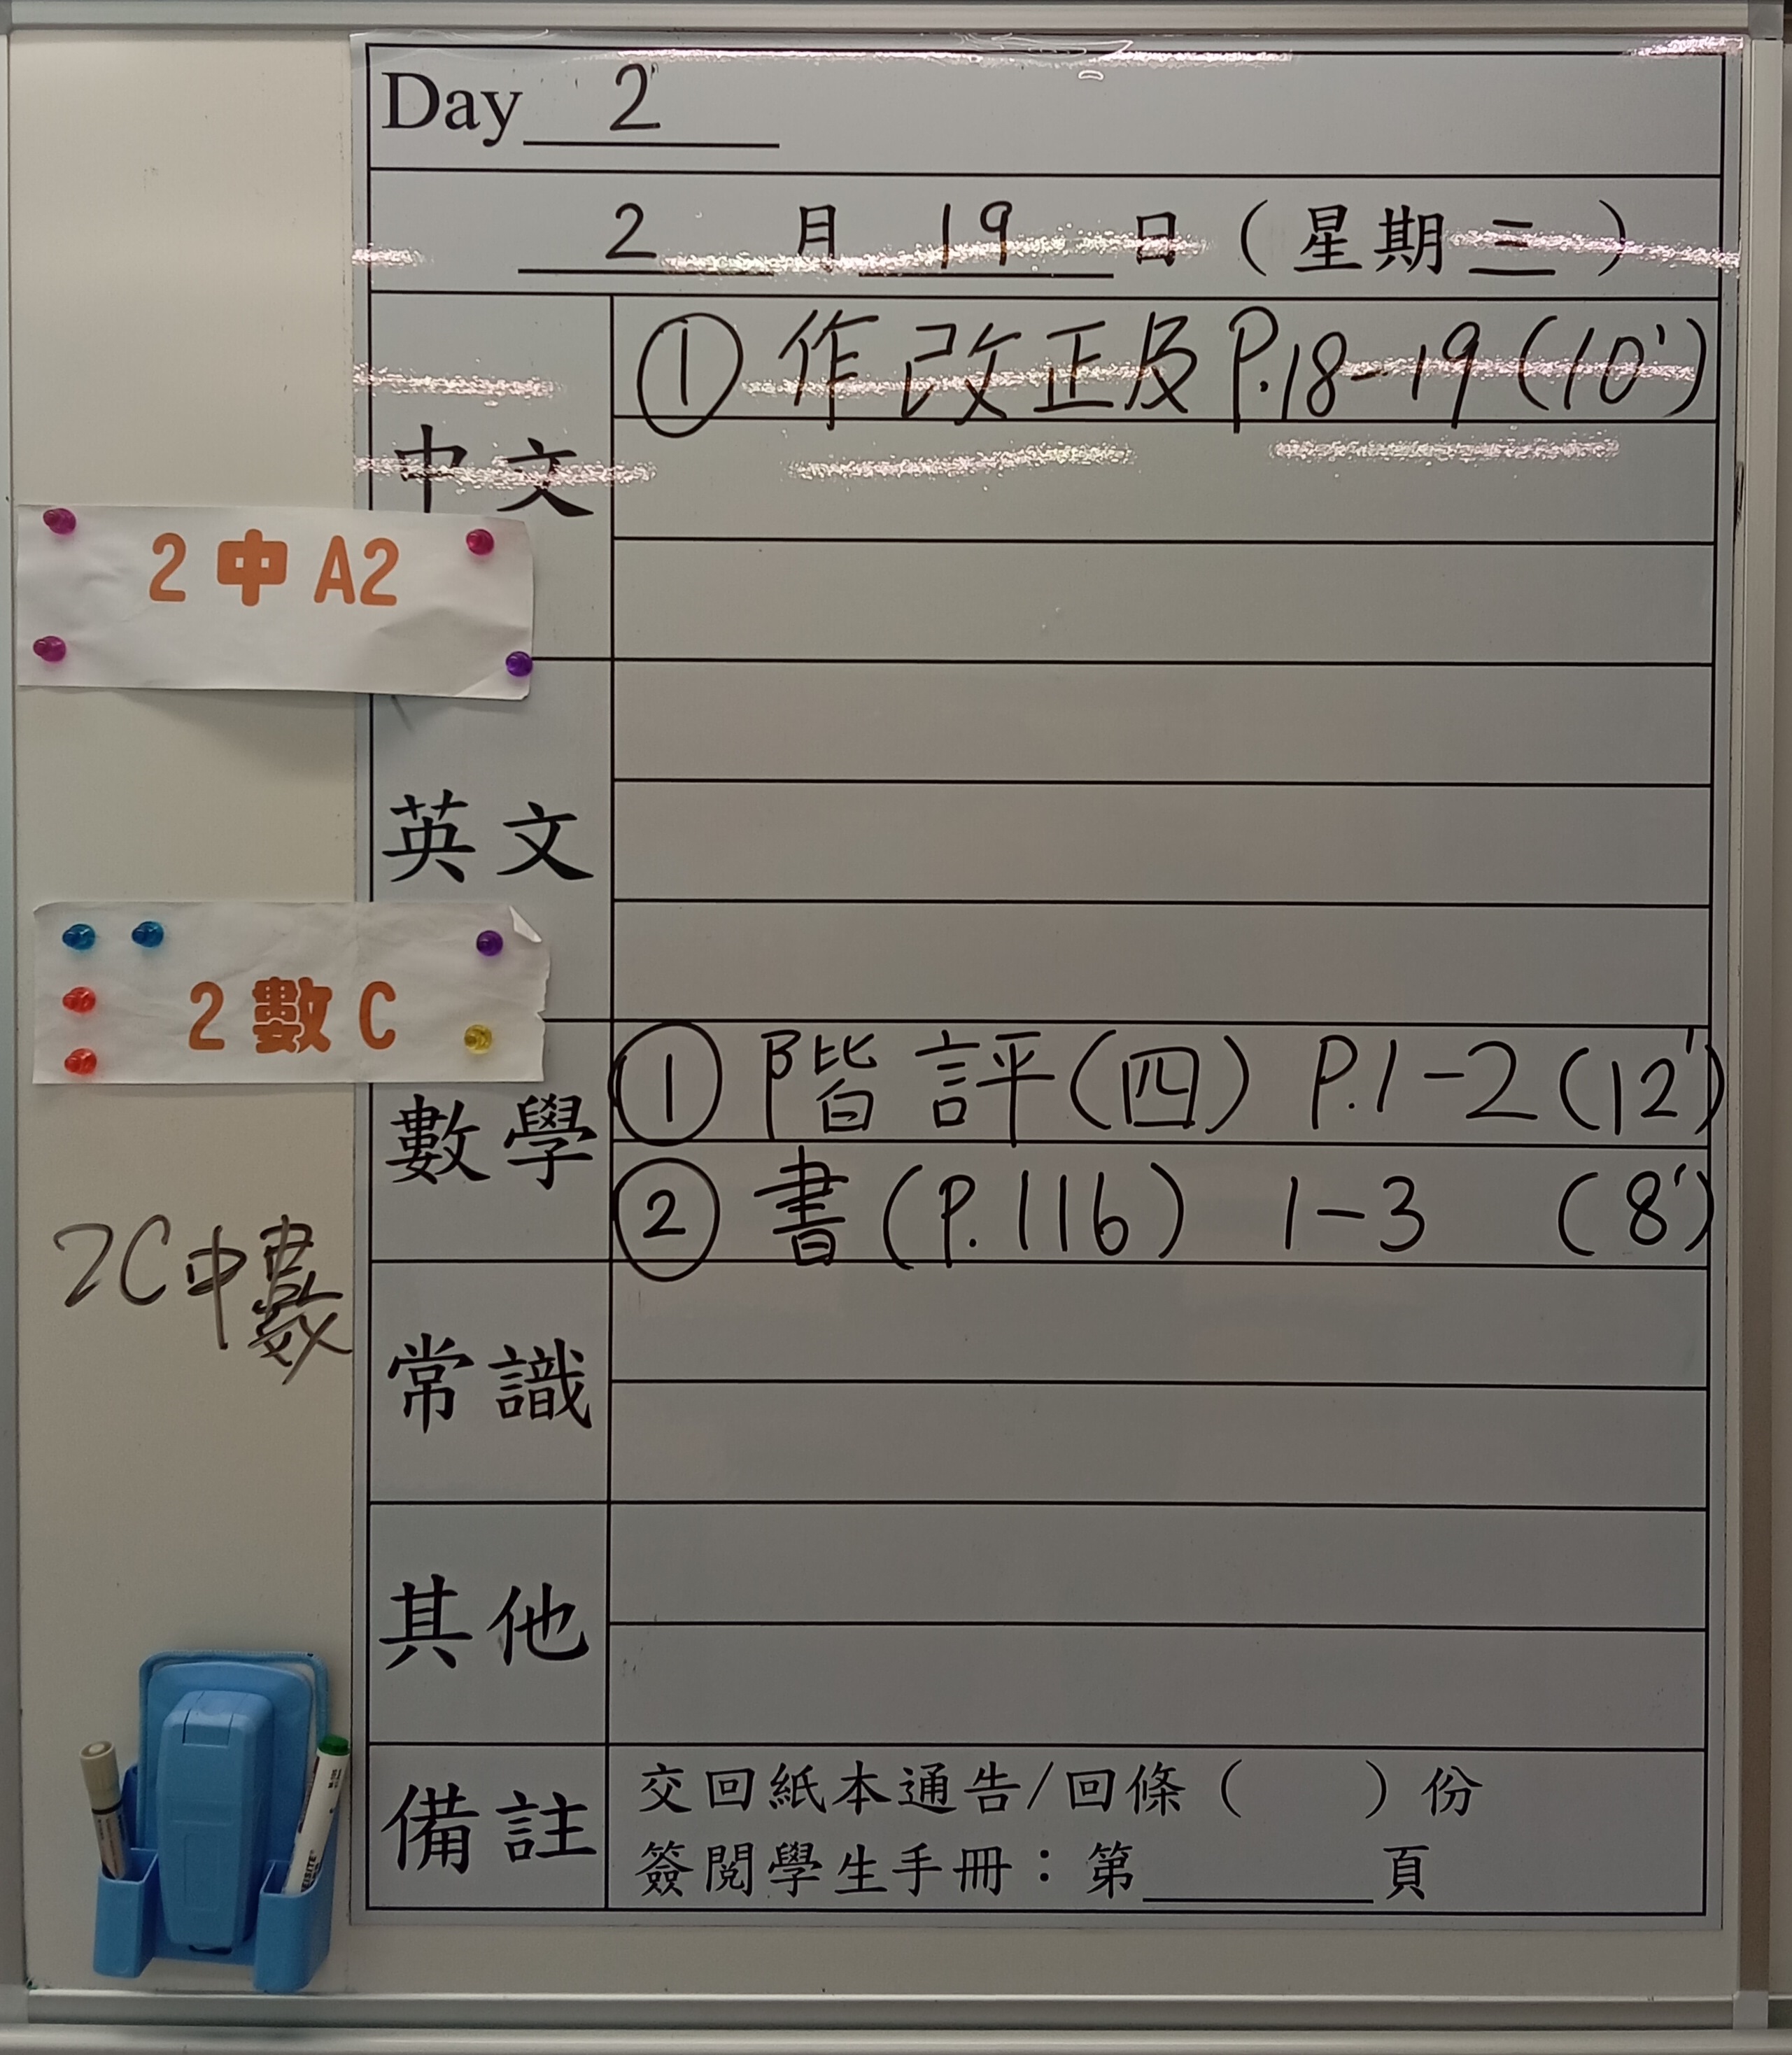 Day 2
2 月 19 日 (星期三)
中文
① 作改正及 P.18-19 (10')
2 中 A2
英文
2 數 C
數學
① 階評(四) P.1-2 (12')
② 書(P.116) 1-3 (8')
2C中數
常識
其他
備註
交回紙本通告/回條( )份
簽閱學生手冊：第______頁